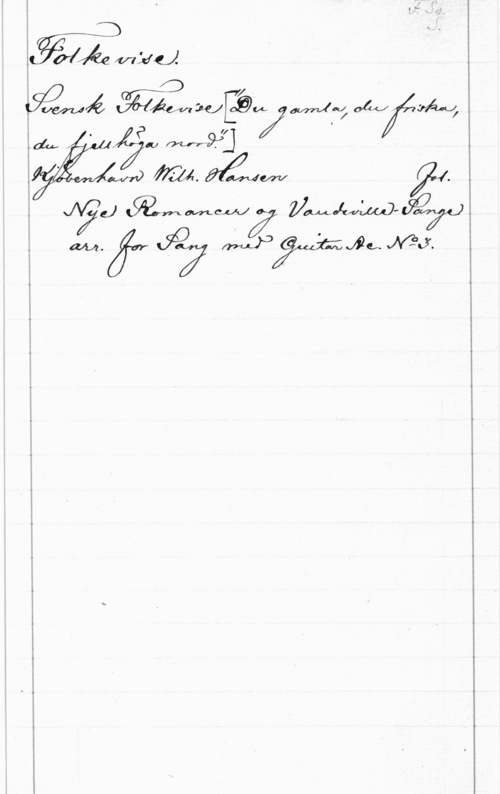 Folkevise.
Svensk Folkevise ["Du gamla, du friska,
du fjellhöga nord."]
Kjøbenhavn Wilh. Hansen fol.
Nye Romancer og Vaudeville-Sange
arr. for Sang med Guitar Ac. Nº 3.